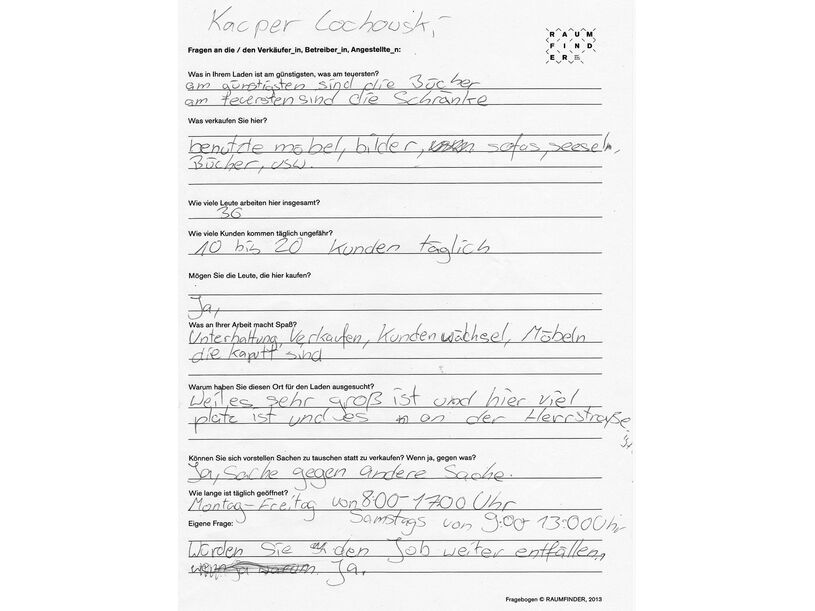 Kacper Lochowski
RAUM
FIND
ER
Fragen an die / den Verkäufer_in, Betreiber_in, Angestellte_n:
Was in Ihrem Laden ist am günstigsten, was am teuersten?
am günstigsten sind die Bücher
am teuersten sind die Schränke
Was verkaufen Sie hier?
benutzte möbel, bilder, sofas, seeseln,
Bücher, usw.
Wie viele Leute arbeiten hier insgesamt?
36
Wie viele Kunden kommen täglich ungefähr?
10 bis 20 Kunden täglich
Mögen Sie die Leute, die hier kaufen?
Ja,
Was an Ihrer Arbeit macht Spaß?
Unterhaltung, Verkaufen, Kunden wächsel, Möbeln
die kaputt sind
Warum haben Sie diesen Ort für den Laden ausgesucht?
Weil es sehr groß ist und hier viel
platz ist und es an der Herrstraße
ist
Können Sie sich vorstellen Sachen zu tauschen statt zu verkaufen? Wenn ja, gegen was?
Ja, Sache gegen andere Sache.
Wie lange ist täglich geöffnet?
Montag-Freitag von 8:00-17:00 Uhr
Samstags von 9:00 - 13:00 Uhr
Eigene Frage:
Würden Sie den Job weiter entfällen,
wenn ja warum Ja,
Fragebogen © RAUMFINDER, 2013